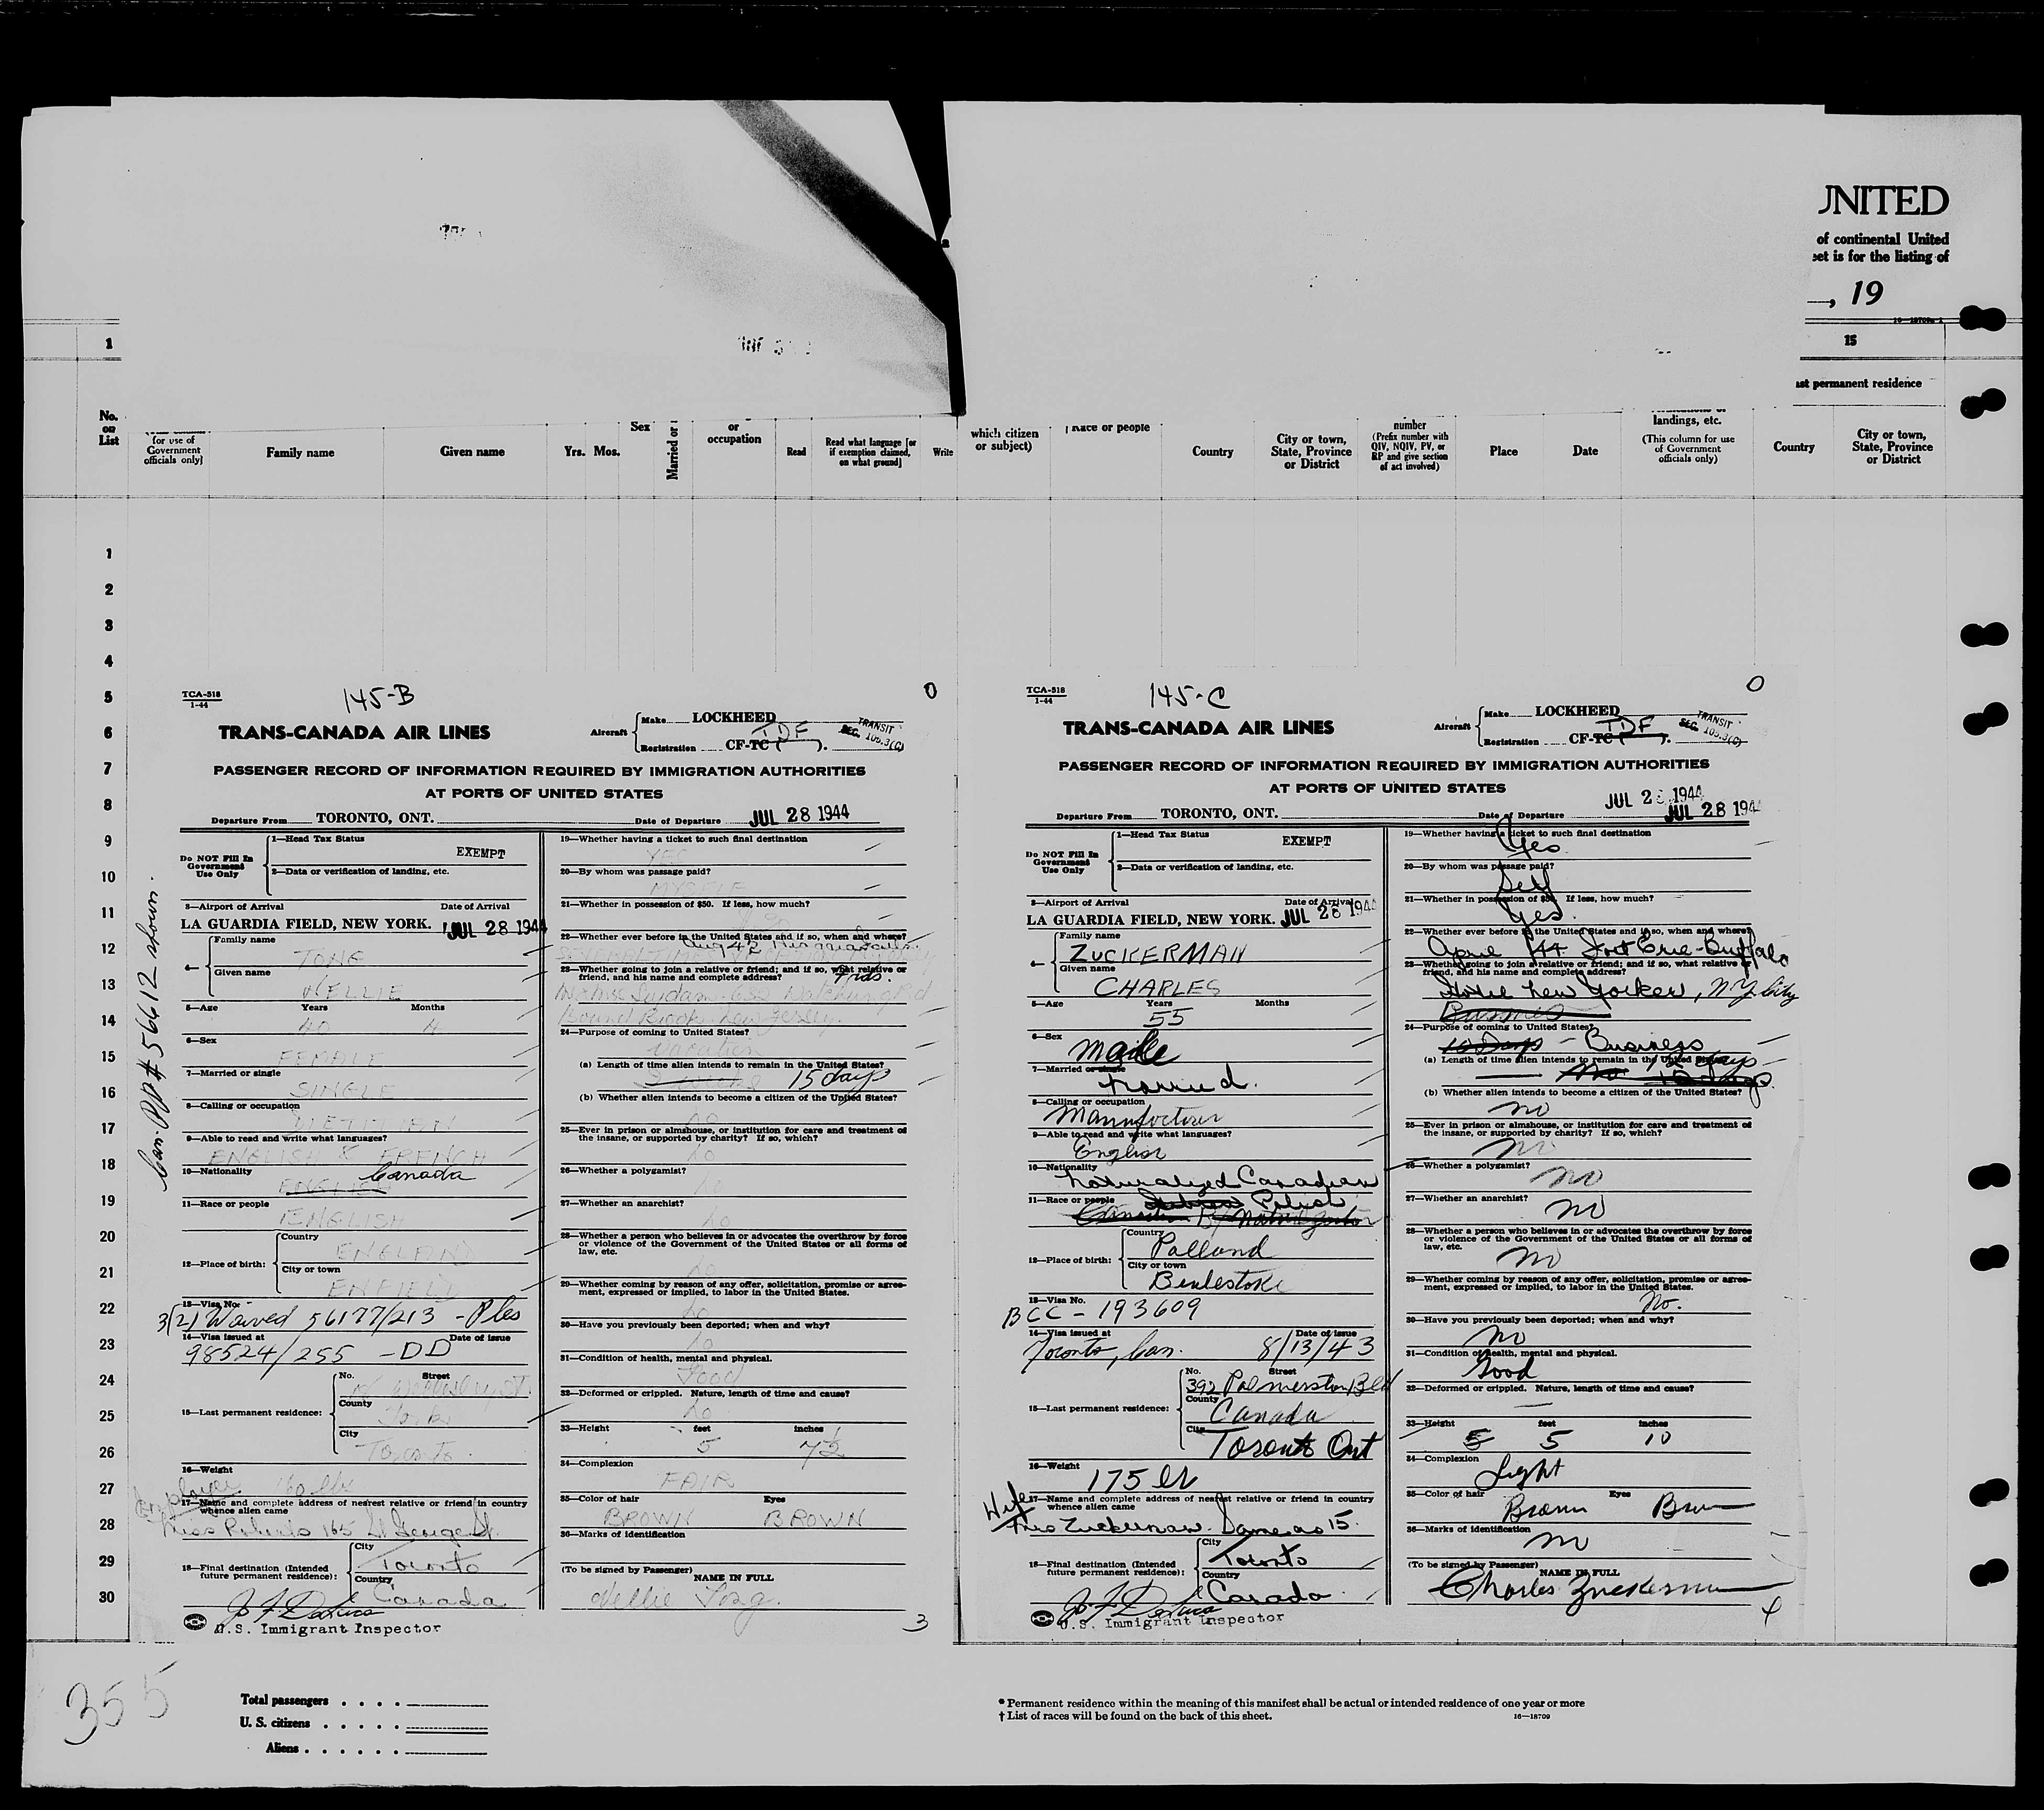 UNITED
of continental United
eet is for the listing of
, 19
16—18709a-1
1
15
ast permanent residence
No.
on
List
(for use of
Government
officials only)
Family name
Given name
Yrs. Mos.
Sex
Married or
or
occupation
Read
Read what language [or
if exemption claimed,
on what ground]
Write
which citizen
or subject)
Race or people
Country
City or town,
State, Province
or District
number
(Prefix number with
QIV, NQIV, PV, or
RP and give section
of act involved)
Place
Date
landings, etc.
(This column for use
of Government
officials only)
Country
City or town,
State, Province
or District
1
2
3
4
5
6
7
8
9
10
11
12
13
14
15
16
17
18
19
20
21
22
23
24
25
26
27
28
29
30
Can. PP# 56612 shown.
TCA-518
1-44
145-B
0
TRANS-CANADA AIR LINES
Aircraft
Make LOCKHEED
Registration CF-TC ( ). TDF
TRANSIT
SEC. 105.3(C)
PASSENGER RECORD OF INFORMATION REQUIRED BY IMMIGRATION AUTHORITIES
AT PORTS OF UNITED STATES
Departure From TORONTO, ONT. Date of Departure JUL 28 1944
Do NOT Fill In
Government
Use Only
1—Head Tax Status
EXEMPT
2—Data or verification of landing, etc.
3—Airport of Arrival Date of Arrival
LA GUARDIA FIELD, NEW YORK. JUL 28 1944
4—
Family name
TONG
Given name
NELLIE
5—Age Years Months
40 4
6—Sex
FEMALE
7—Married or single
SINGLE
8—Calling or occupation
DIETITIAN
9—Able to read and write what languages?
ENGLISH & FRENCH
10—Nationality Canada
ENGLISH
11—Race or people
ENGLISH
12—Place of birth:
Country
ENGLAND
City or town
ENFIELD
13—Visa No.
3(2) Waived 56177/213 - Ples
14—Visa issued at Date of issue
98524/255 - DD
15—Last permanent residence:
No. Street
County
York
City
Toronto
16—Weight
160 lbs
Employer
17—Name and complete address of nearest relative or friend in country
whence alien came
Miss Roberts 165 St George St.
18—Final destination (Intended
future permanent residence):
City
Toronto
Country
Canada
U.S. Immigrant Inspector
19—Whether having a ticket to such final destination
YES
20—By whom was passage paid?
MYSELF
21—Whether in possession of $50. If less, how much?
22—Whether ever before in the United States and if so, when and where?
Aug 42 Niagara Falls.
23—Whether going to join a relative or friend; and if so, what relative or
friend, and his name and complete address?
Frds.
Suydam 632 Watchung Rd
Bound Brook New Jersey.
24—Purpose of coming to United States?
Vacation
(a) Length of time alien intends to remain in the United States?
15 days
(b) Whether alien intends to become a citizen of the United States?
No
25—Ever in prison or almshouse, or institution for care and treatment of
the insane, or supported by charity? If so, which?
No
26—Whether a polygamist?
No
27—Whether an anarchist?
No
28—Whether a person who believes in or advocates the overthrow by force
or violence of the Government of the United States or all forms of
law, etc.
No
29—Whether coming by reason of any offer, solicitation, promise or agree-
ment, expressed or implied, to labor in the United States.
No
30—Have you previously been deported; when and why?
No
31—Condition of health, mental and physical.
Good
32—Deformed or crippled. Nature, length of time and cause?
No
33—Height feet inches
5 7½
34—Complexion
FAIR
35—Color of hair Eyes
BROWN BROWN
36—Marks of identification
(To be signed by Passenger)
NAME IN FULL
Nellie Tong.
3
TCA-518
1-44
145-C
0
TRANS-CANADA AIR LINES
Aircraft
Make LOCKHEED
Registration CF-TC ( ). TDF
TRANSIT
SEC. 105.3(C)
PASSENGER RECORD OF INFORMATION REQUIRED BY IMMIGRATION AUTHORITIES
AT PORTS OF UNITED STATES
JUL 28 1944
Departure From TORONTO, ONT. Date of Departure JUL 28 1944
Do NOT Fill In
Government
Use Only
1—Head Tax Status
EXEMPT
2—Data or verification of landing, etc.
3—Airport of Arrival Date of Arrival
LA GUARDIA FIELD, NEW YORK. JUL 28 1944
4—
Family name
ZUCKERMAN
Given name
CHARLES
5—Age Years Months
55
6—Sex
Male
7—Married or single
Married.
8—Calling or occupation
Manufacturer
9—Able to read and write what languages?
English
10—Nationality
Naturalized Canadian
11—Race or people Hebrew Polish
Canadian By Naturalization
12—Place of birth:
Country
Polland
City or town
13—Visa No.
BCC - 193609
14—Visa issued at Date of issue
Toronto, Can. 8/13/43
15—Last permanent residence:
No. Street
392 Palmerston Bld
County
Canada
City
Toronto Ont
16—Weight
175 lb
Wife
17—Name and complete address of nearest relative or friend in country
whence alien came
Mrs Zuckerman. Same as 15.
18—Final destination (Intended
future permanent residence):
City
Toronto
Country
Canada
U.S. Immigrant Inspector
19—Whether having a ticket to such final destination
Yes
20—By whom was passage paid?
Self
21—Whether in possession of $50. If less, how much?
Yes.
22—Whether ever before in the United States and if so, when and where?
April '44 Fort Erie-Buffalo
23—Whether going to join a relative or friend; and if so, what relative or
friend, and his name and complete address?
Hotel New Yorker, N.Y. City
Business
24—Purpose of coming to United States?
10 Days - Business
(a) Length of time alien intends to remain in the United States?
12 days
No 12 days
(b) Whether alien intends to become a citizen of the United States?
No
25—Ever in prison or almshouse, or institution for care and treatment of
the insane, or supported by charity? If so, which?
No
26—Whether a polygamist?
No
27—Whether an anarchist?
No
28—Whether a person who believes in or advocates the overthrow by force
or violence of the Government of the United States or all forms of
law, etc.
No
29—Whether coming by reason of any offer, solicitation, promise or agree-
ment, expressed or implied, to labor in the United States.
No.
30—Have you previously been deported; when and why?
No
31—Condition of health, mental and physical.
Good
32—Deformed or crippled. Nature, length of time and cause?
—
33—Height feet inches
5 5 10
34—Complexion
Light
35—Color of hair Eyes
Brown Brown
36—Marks of identification
No
(To be signed by Passenger)
NAME IN FULL
Charles Zuckerman
4
355
Total passengers
U. S. citizens
Aliens
* Permanent residence within the meaning of this manifest shall be actual or intended residence of one year or more
† List of races will be found on the back of this sheet.
16—18709